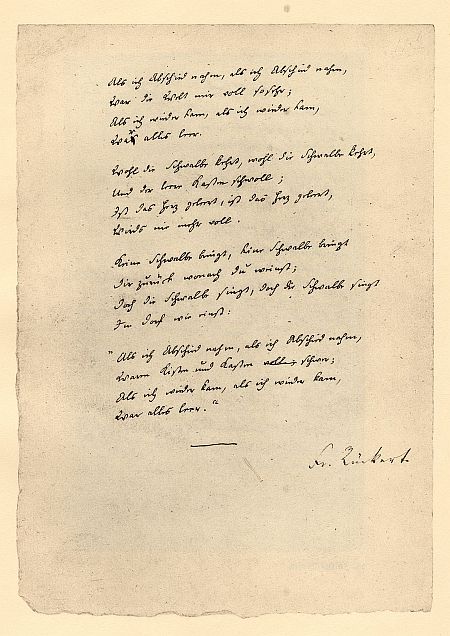 Als ich Abschied nahm, als ich Abschied nahm,
War die Welt mir voll so sehr;
Als ich wieder kam, als ich wieder kam,
War alles leer.
Wohl die Schwalbe kehrt, wohl die Schwalbe kehrt,
Und der leere Kasten schwoll;
Ist das Herz geleert, ist das Herz geleert,
Wirds nie mehr voll.
Keine Schwalbe bringt, keine Schwalbe bringt
Dir zurück wonach du weinst;
Doch die Schwalbe singt, doch die Schwalbe singt
Im Dorf wie einst:
„Als ich Abschied nahm, als ich Abschied nahm,
Waren Kisten und Kasten schwer;
Als ich wieder kam, als ich wieder kam,
War alles leer.“
Fr. Rückert.